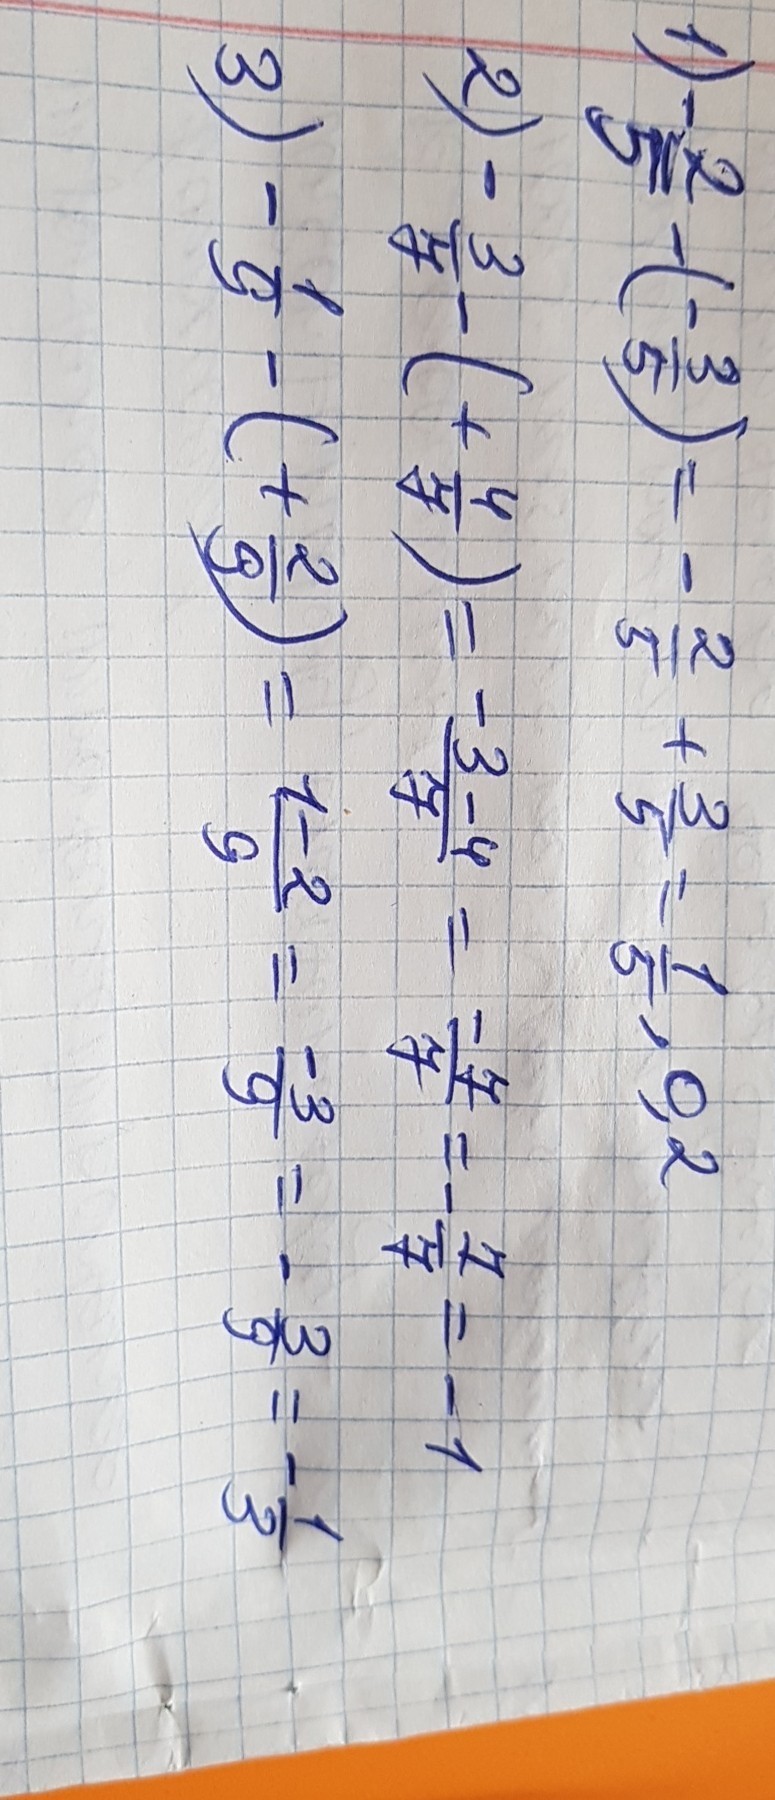 1) -2/5 - (-3/5) = -2/5 + 3/5 = 1/5, 0,2
2) -3/7 - (+4/7) = -3-4/7 = -7/7 = -7/7 = -1
3) -1/9 - (+2/9) = 1-2/9 = -3/9 = -3/9 = -1/3